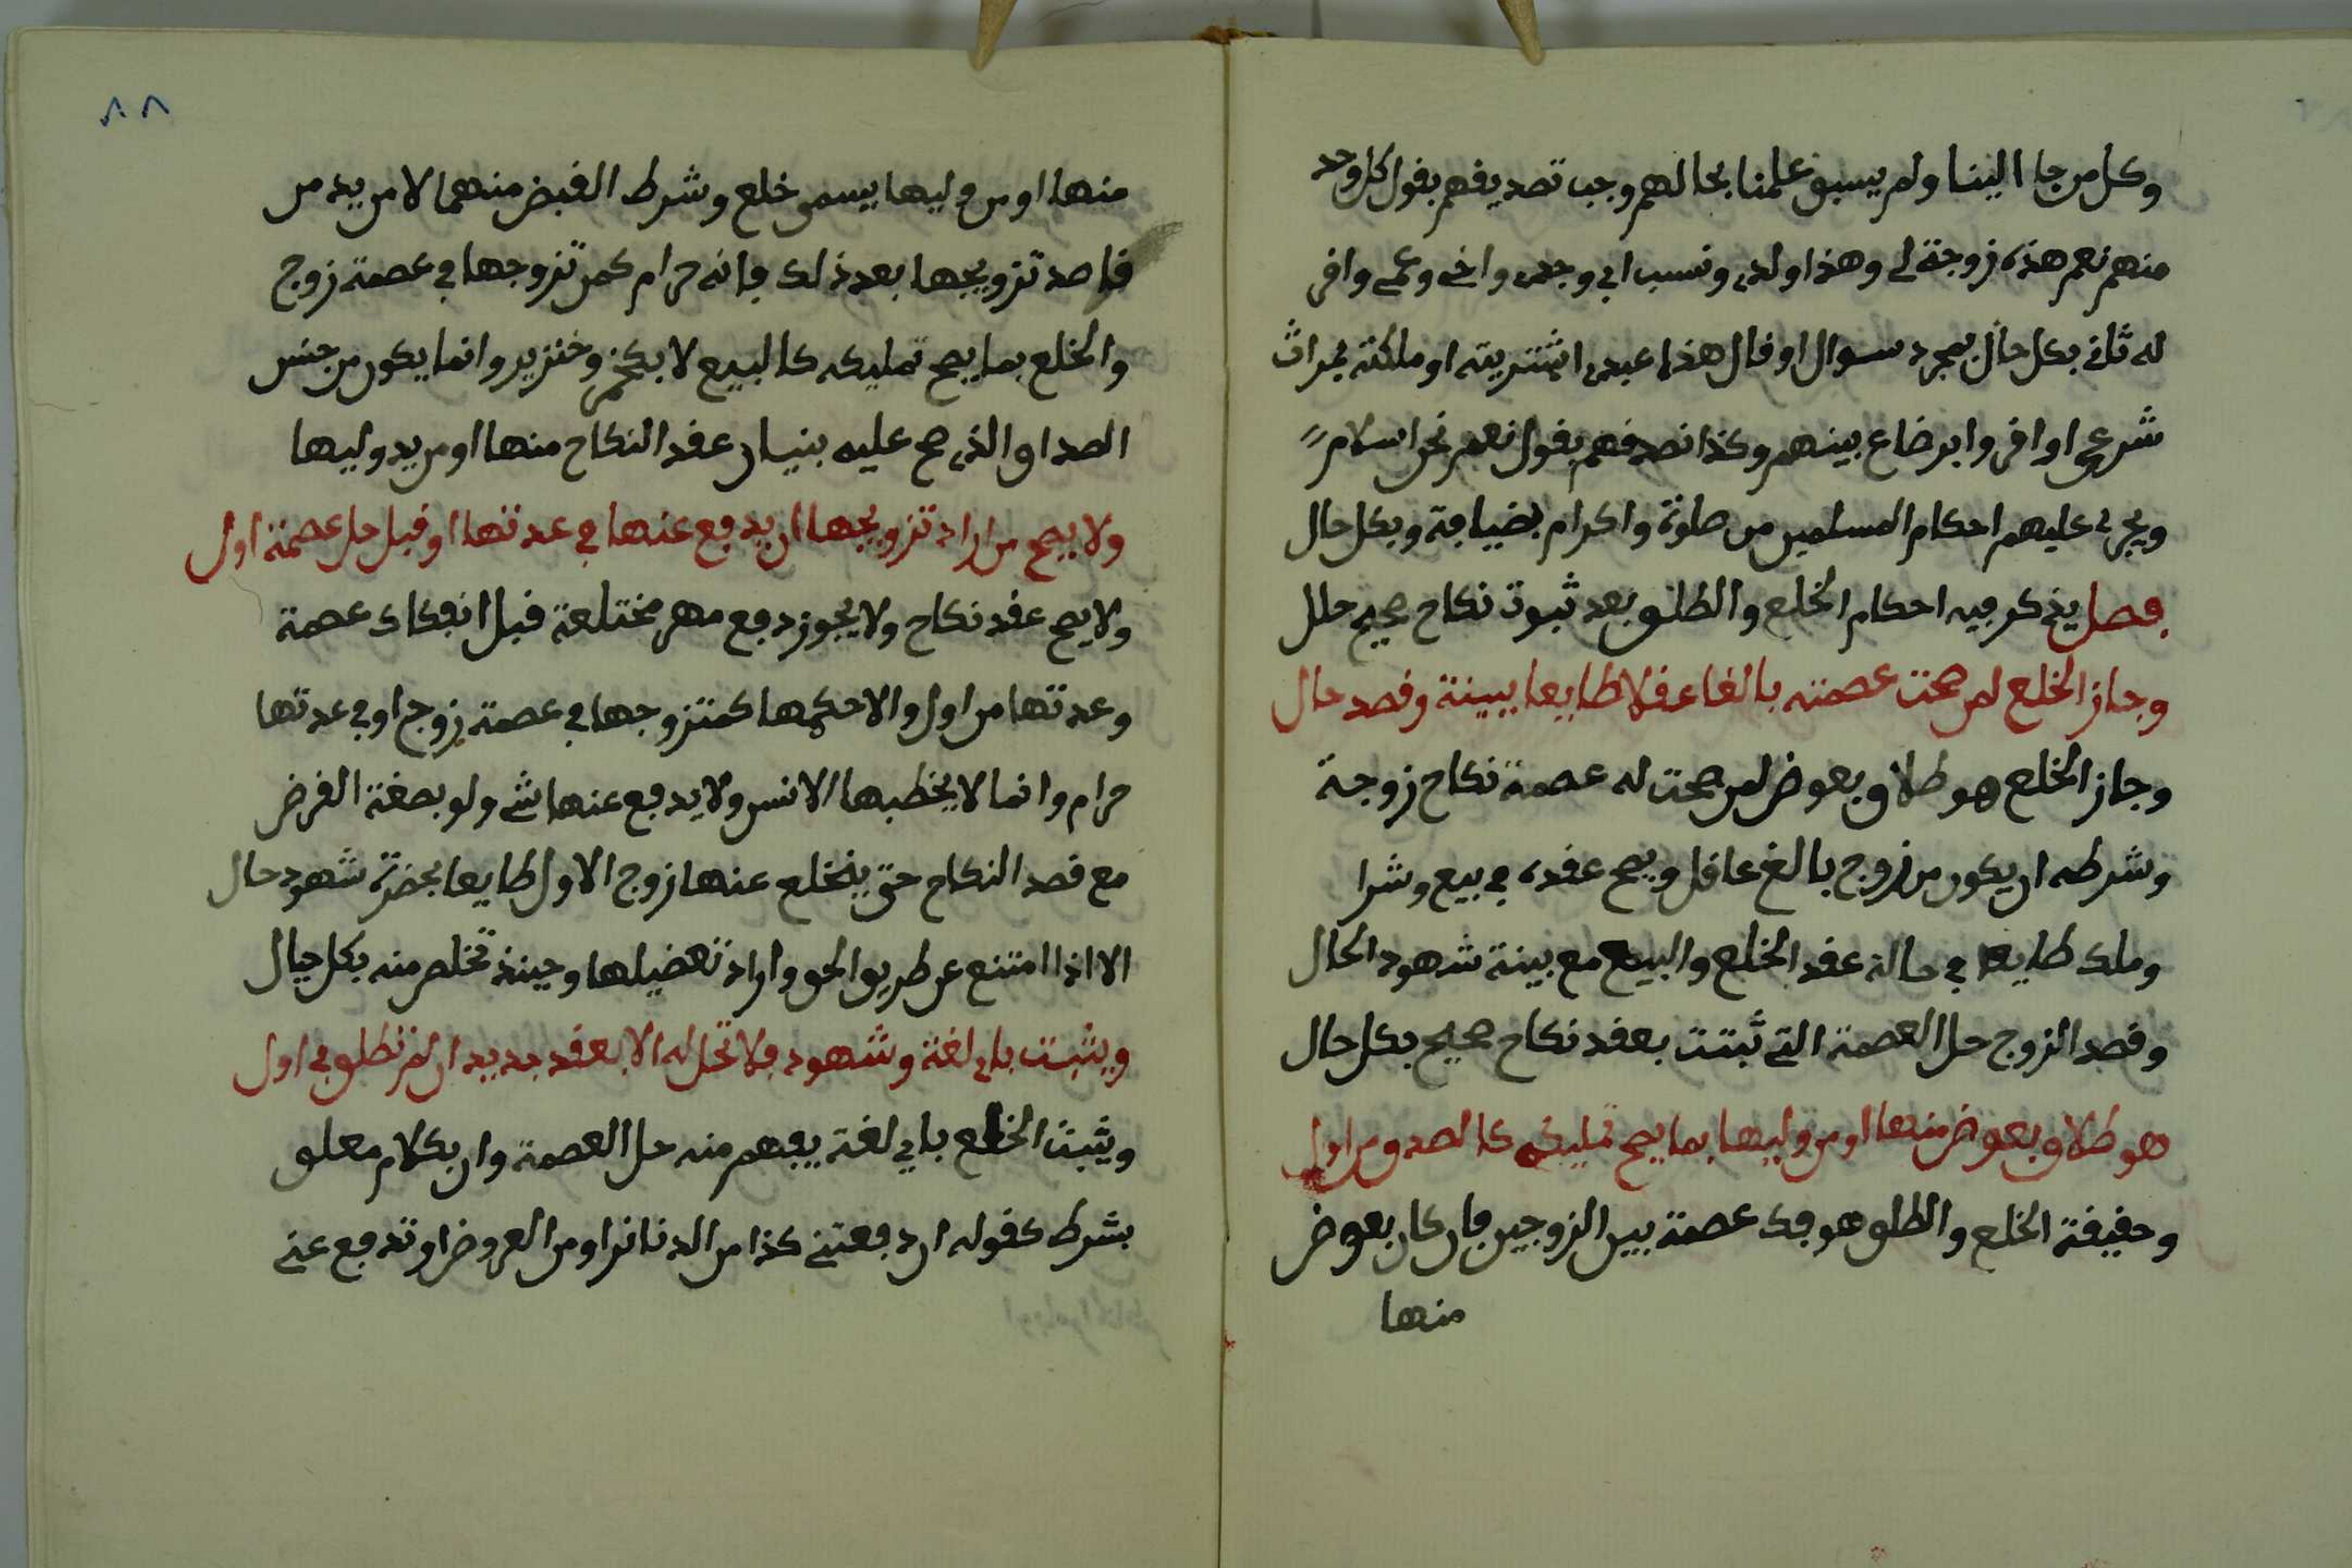 وكل من جا الينا ولم يسبق علمنا بحالهم وجب تصديقهم بقول كل وحد
منهم نعم هذه زوجة لي وهذا ولدي ونسب ابي وجدي واخي وعمي واقر
له ثاني بكل حال بمجرد سوال او قال هذا عبدي اشتريته او ملكته بميراث
شرعي او اقروا برضاع بينهم وكذا نصدقهم بقول نعم نحن اسلام
ويجري عليهم احكام المسلمين من صلوة واكرام بضيافة وبكل حال
فصل يذكر فيه احكام الخلع والطلق بعد ثبوت نكاح صحيح حلل
وجاز الخلع لمن صحت عصمته بالغا عقلا طايعا ببينة وقصد حال
وجاز الخلع هو طلاق بعوض لمن صحت له عصمة نكاح زوجة
وشرطه ان يكون من زوج بالغ عاقل ويصح عقده في بيع وشرا
وملك طايعا في حالة عقد الخلع والبيع مع بينة شهود الحال
وقصد الزوج حل العصمة التي ثبتت بعقد نكاح صحيح بكل حال
هو طلاق بعوض منها او من وليها بما يصح تمليكه كالصدق من اول
وحقيقة الخلع والطلق هو فك عصمة بين الزوجين فان كان بعوض
منها
٨٨
منها او من وليها يسمى خلع وشرط القبض منهما لا من يد من
قاصد تزويجها بعد ذلك فانه حرام كمن تزوجها في عصمة زوج
والخلع بما يصح تمليكه كالبيع لا بكخمر وخنزير وانما يكون من جنس
الصداق الذي صح عليه بنيان عقد النكاح منها او من يد وليها
ولا يصح من اراد تزويجها ان يدفع عنها في عدتها او قبل حل عصمة اول
ولا يصح عقد نكاح ولا يجوز دفع مهر مختلعة قبل انفكاك عصمة
وعدتها من اول والا حكمها كمتزوجها في عصمة زوج او في عدتها
حرام وانما لا يخطبها الانس ولا يدفع عنها شي ولو بصفة القرض
مع قصد النكاح حتى ينخلع عنها زوج الاول طايعا بحضرة شهود حال
الا اذا امتنع عن طريق الحق واراد تعضيلها وحينذ تخلص منه بكل حيال
ويثبت باي لغة وشهود فلا تحل له الا بعقد جديد ان لم تطلق في اول
ويثبت الخلع باي لغة يفهم منه حل العصمة وان بكلام معلق
بشرط كقوله ان دفعتني كذا من الدنانر او من العروض او تدفع عني